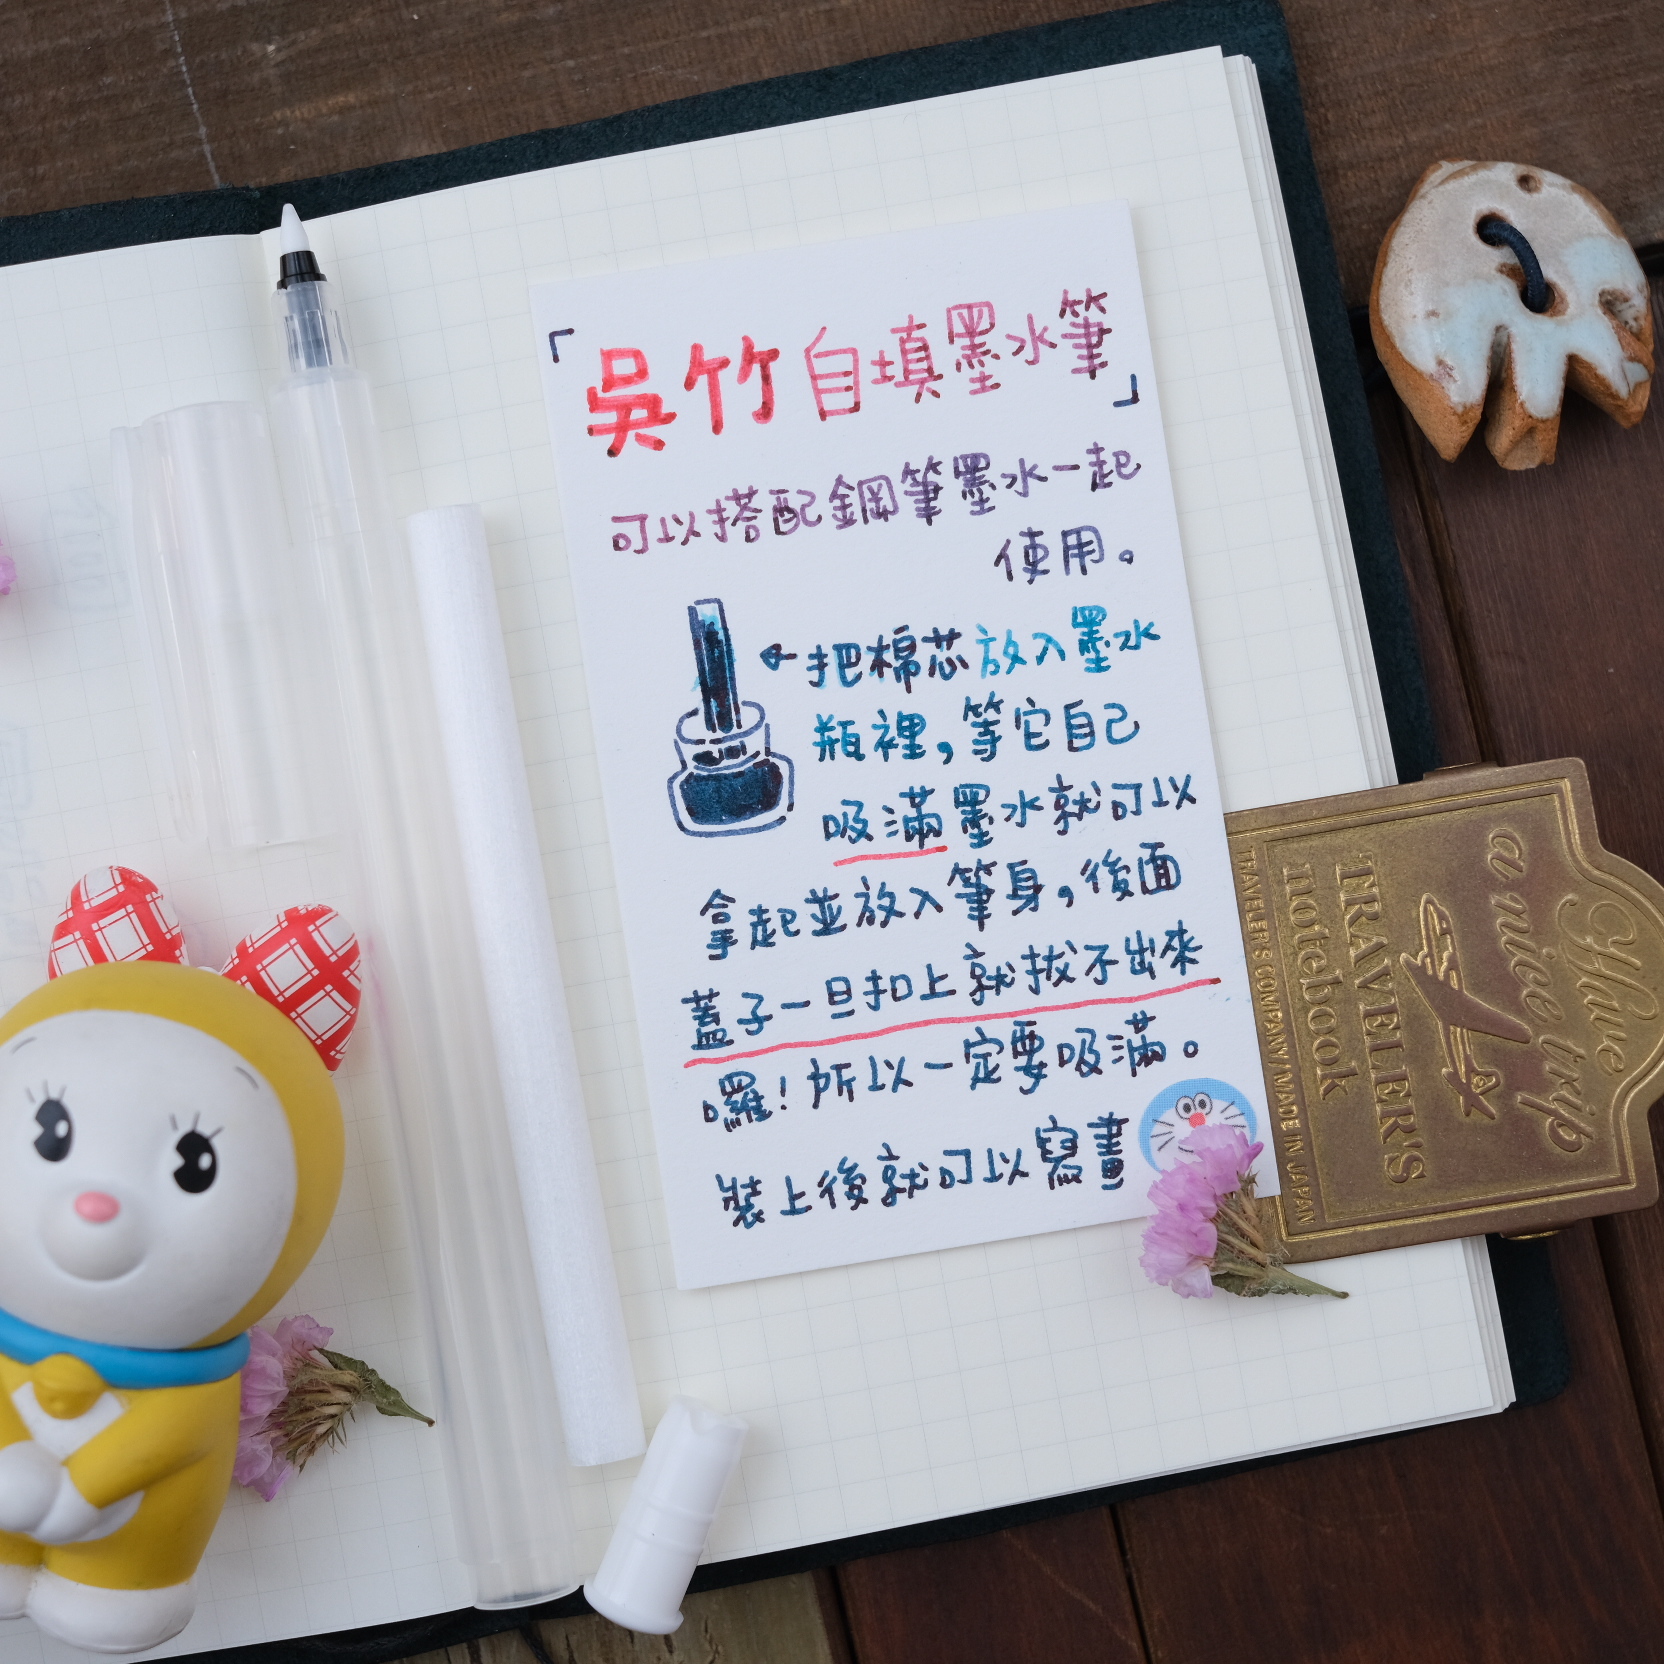 「吳竹自填墨水筆」
可以搭配鋼筆墨水一起
使用。
把棉芯放入墨水
瓶裡,等它自己
吸滿墨水就可以
拿起並放入筆身,後面
蓋子一旦扣上就拔不出來
囉!所以一定要吸滿。
裝上後就可以寫畫
Have
a nice trip
TRAVELER'S
notebook
TRAVELER'S COMPANY/MADE IN JAPAN